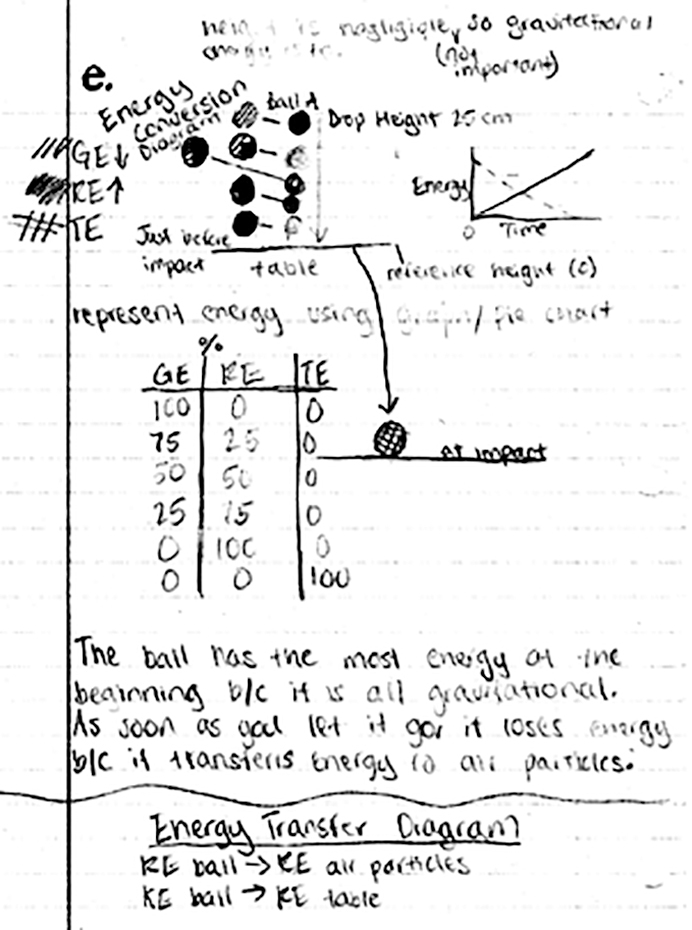 height is negligible, so gravitational
energy is
(not
important)
e.
Energy
Conversion
Diagram
ball A
Drop Height 25 cm
GE↓
KE↑
TE
Energy
0 Time
Just before
impact
table
reference height (c)
represent energy using Graph/Pie chart
%
GE KE TE
100 0 0
75 25 0
50 50 0
25 75 0
0 100 0
0 0 100
At impact
The ball has the most energy at the
beginning b/c it is all gravitational.
As soon as you let it go, it loses energy
b/c it transfers energy to air particles.
Energy Transfer Diagram
KE ball → KE air particles
KE ball → KE table